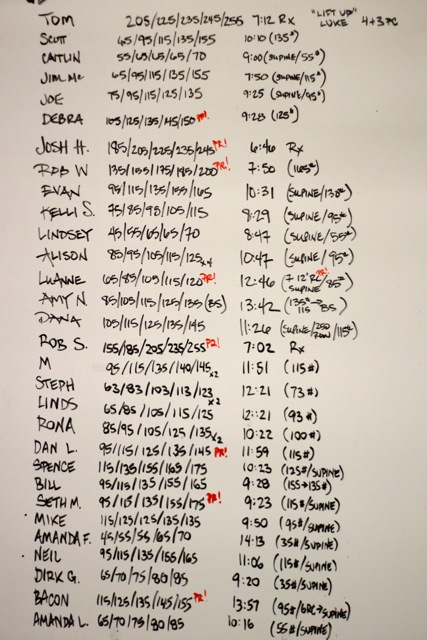 TOM 205/225/235/245/255 7:12 Rx "LIFT UP" LUKE 4+3 PC
SCOTT 65/95/115/135/155 10:10 (135#)
CAITLIN 55/65/65/65/70 9:00 (SUPINE/55#)
JIM Mc 65/95/115/135/155 7:50 (SUPINE/115#)
JOE 75/95/115/125/135 9:25 (SUPINE/95#)
DEBRA 105/125/135/145/150 PR! 9:28 (125#)
JOSH H. 195/205/225/235/245 PR! 6:46 Rx
ROB W 135/155/175/195/200 PR! 7:50 (165#)
EVAN 95/115/135/155/165 10:31 (SUPINE/138#)
KELLI S. 75/85/95/105/115 8:29 (SUPINE/95#)
LINDSEY 45/55/65/65/70 8:47 (SUPINE/55#)
ALISON 85/95/105/115/125x4 10:47 (SUPINE/95#)
LUANNE 65/85/105/115/120 PR! 12:46 (7 12" RC PR! SUPINE/85#)
AMY N. 85/105/115/125/135 (85) 13:42 (135#→115 85)
DANA 105/115/125/135/145 11:26 (SUPINE/250 ROW/115#)
ROB S. 155/185/205/235/255 PR! 7:02 Rx
M 95/115/135/140/145x2 11:51 (115#)
STEPH 63/83/103/113/123x2 12:21 (73#)
LINDS 65/85/105/115/125 12:21 (93#)
RONA 85/95/105/125/135x2 10:22 (100#)
DAN L. 95/115/125/135/145 PR! 11:59 (115#)
SPENCE 115/135/155/165/175 10:23 (125#/SUPINE)
BILL 95/115/135/155/165 9:28 (155→135#)
SETH M. 95/115/135/155/175 PR! 9:23 (115#/SUPINE)
MIKE 115/125/125/135/135 9:50 (95#/SUPINE)
AMANDA F. 45/55/55/65/70 14:13 (35#/SUPINE)
NEIL 95/115/135/155/165 11:06 (115#/SUPINE)
DIRK G. 65/70/75/80/85 9:20 (35#/SUPINE)
BACON 115/125/135/145/155 PR! 13:57 (95#/6RC→SUPINE)
AMANDA L. 65/70/75/80/85 10:16 (55#/SUPINE)